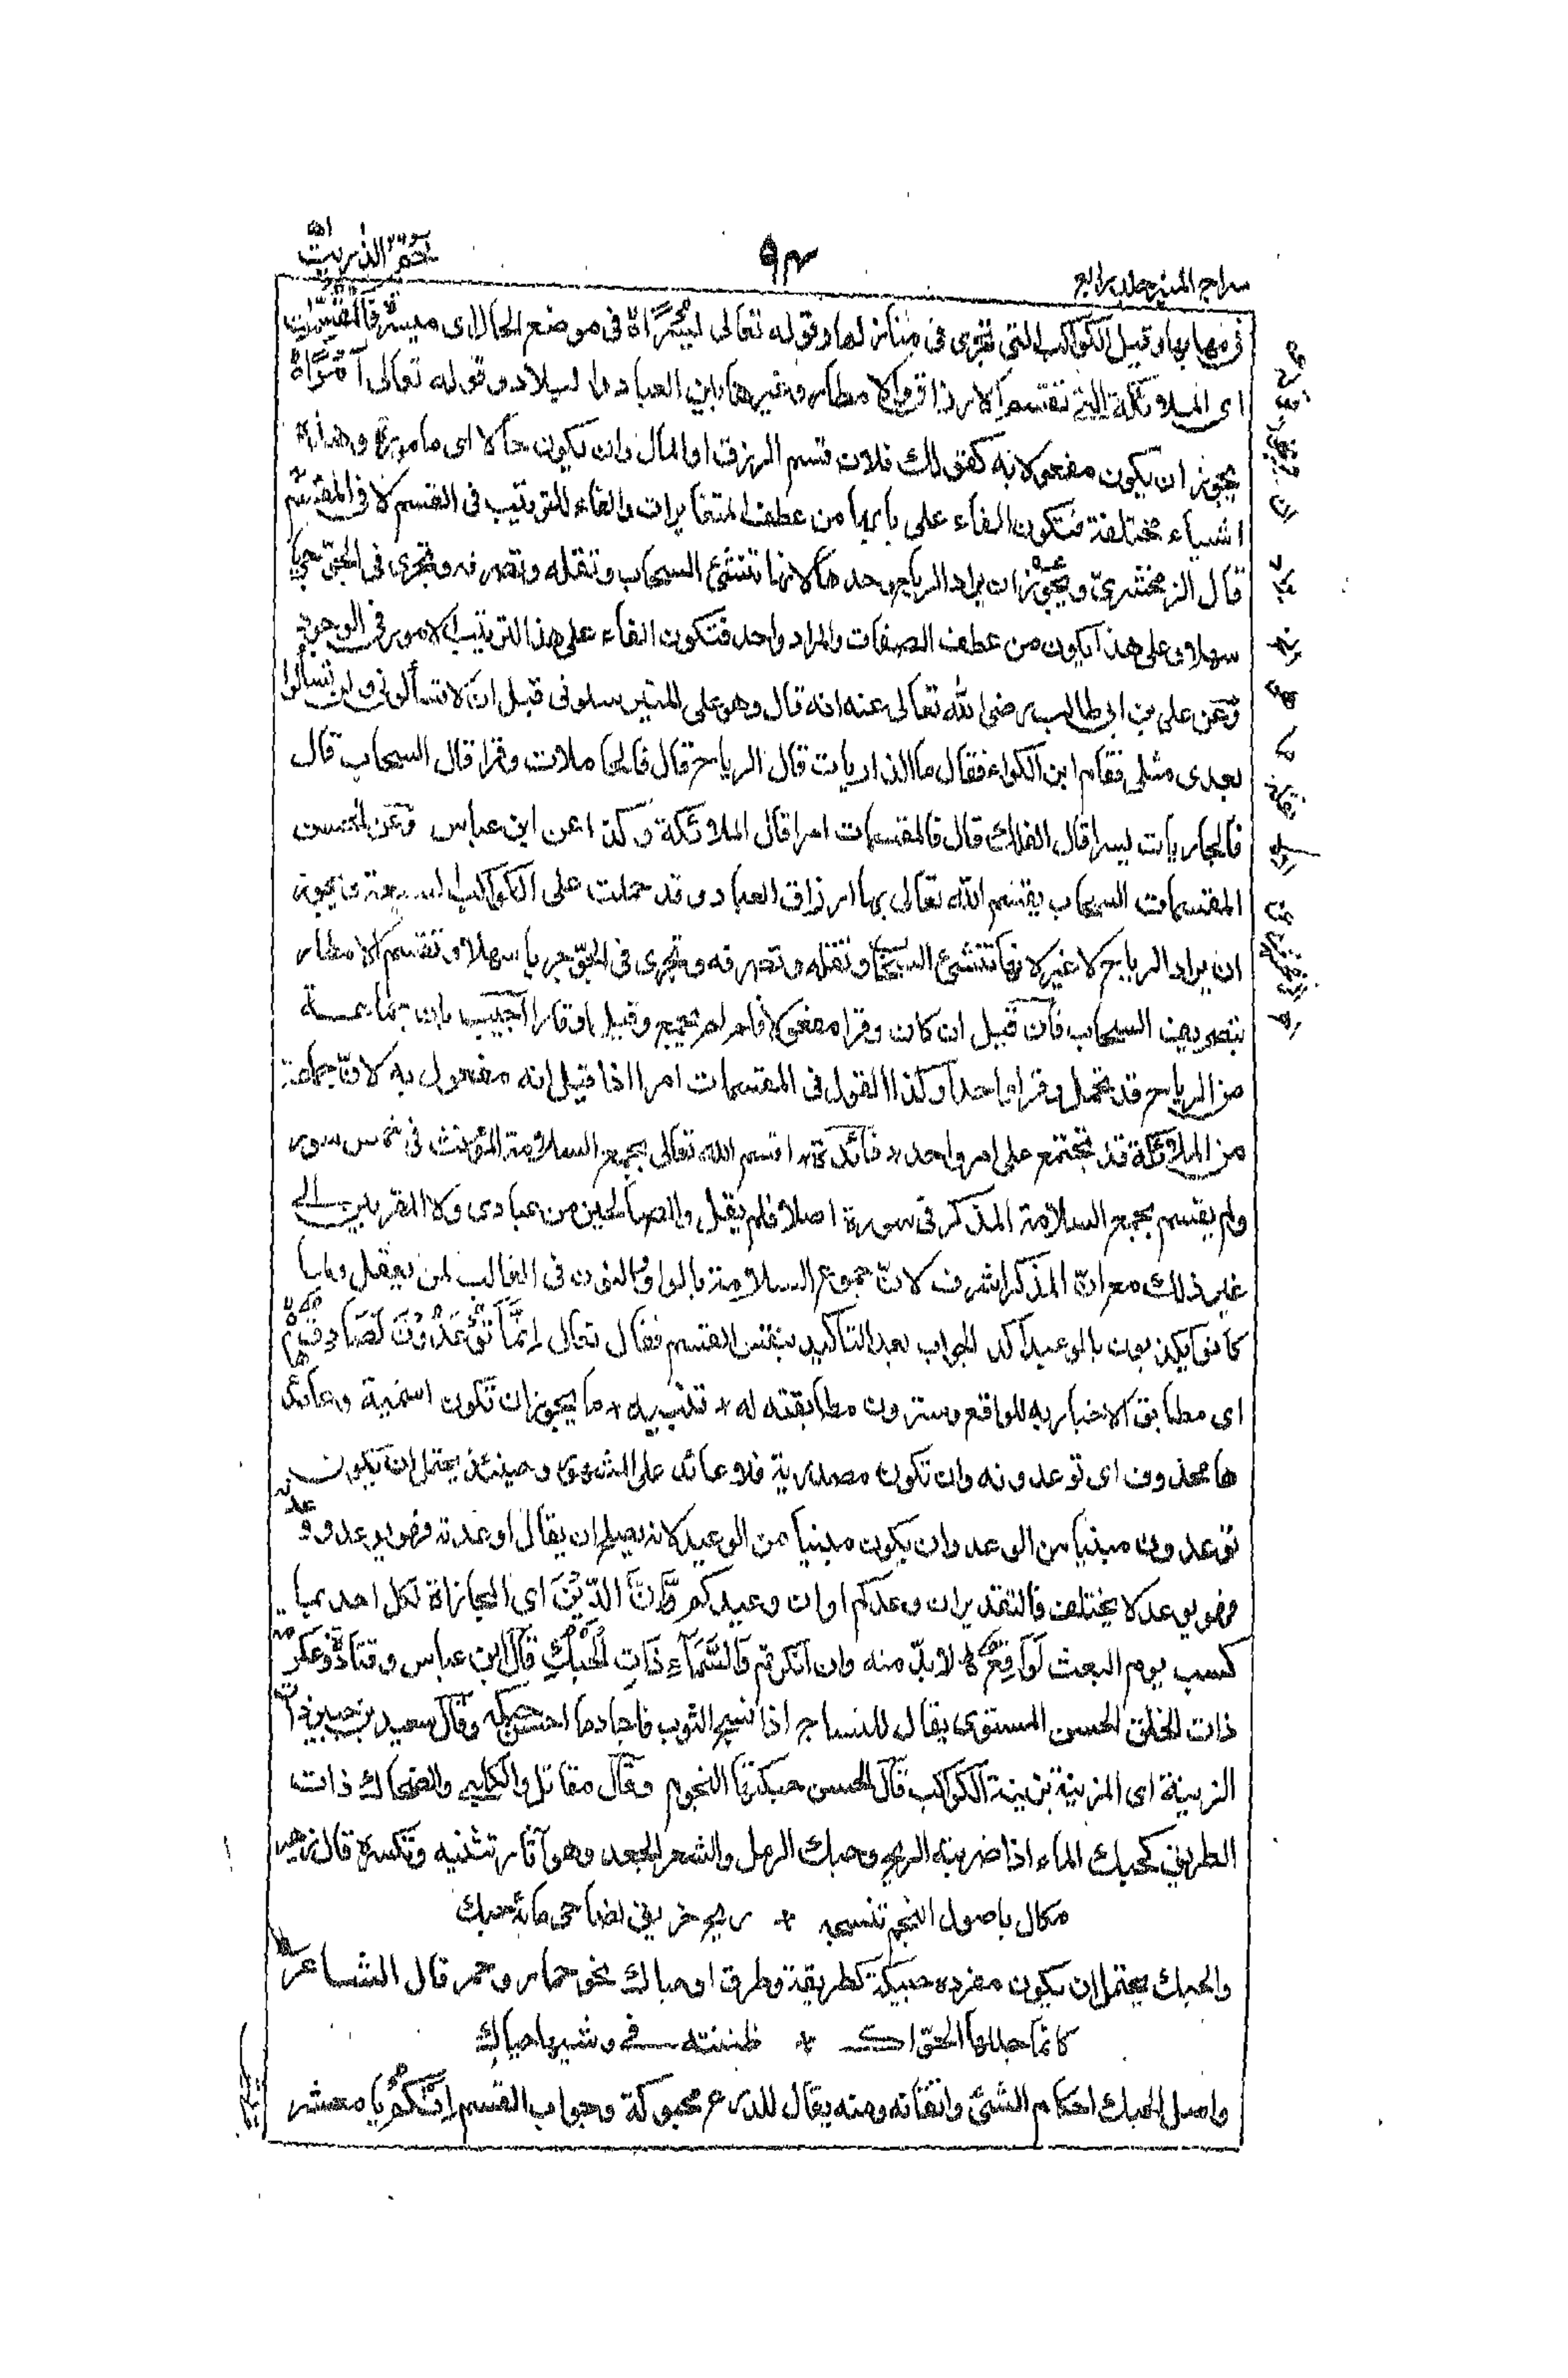 سراج المنير جلد رابع
٩٤
حم الذريت
فى مهابها وقيل الكواكب التى تجرى فى منازلها وقوله تعالى يُسْرًا فى موضع الحال اى ميسرة فَالْمُقَسِّمٰت
اى الملائكة التى تقتسم الارزاق والامطار وغيرها بين العباد والبلاد وقوله تعالى اَمْرًا
يجوز ان يكون مفعولا به كقولك فلان قسم الرزق او المال وان يكون حالا اى مامورة وهذه
اشياء مختلفة فتكون الفاء على بابها من عطف المتغايرات والفاء للترتيب فى القسم لا فى المقسم
قال الزمخشرى ويجوز ان يراد الرياح وحدها لانها تنشئ السحاب وتقله وتصرفه وتجرى فى الجو جريا
سهلا وعلى هذا يكون من عطف الصفات والمراد واحد فتكون الفاء على هذا لترتيب الامور فى الوجود
وعن على بن ابى طالب رضى الله تعالى عنه انه قال وهو على المنبر سلونى قبل ان لا تسألونى ولن تسألوا
بعدى مثلى فقام ابن الكواء فقال ما الذاريات قال الرياح قال فالحاملات وقرا قال السحاب قال
فالجاريات يسرا قال الفلك قال فالمقسمات امرا قال الملائكة وكذا عن ابن عباس وعن الحسن
المقسمات السحاب يقسم الله تعالى بها ارزاق العباد وقد حملت على الكواكب السبعة ويجوز
ان يراد الرياح لا غير لانها تنشئ السحاب وتقله وتصرفه وتجرى فى الجو جريا سهلا وتقسم الامطار
بتصريف السحاب فان قيل ان كان وقرا مفعولا فلم لم يجمع وقيل اوقارا اجيب بان جماعة
من الرياح قد تحمل وقرا واحدا وكذا القول فى المقسمات امرا اذا قيل انه مفعول به لان جماعة
من الملائكة قد تجتمع على امر واحد * فائدة * اقسم الله تعالى بجمع السلامة المؤنث فى خمس سور
ولم يقسم بجمع السلامة المذكر فى سورة اصلا فلم يقل والصالحين من عبادى ولا المقربين الى
غير ذلك مع ان المذكر اشرف لان جموع السلامة بالواو والنون فى الغالب لمن يعقل ولما
كانوا يكذبون بالوعيد اكد الجواب بعد التاكيد بنفس القسم فقال تعالى اِنَّمَا تُوْعَدُوْنَ لَصَادِقٌ
اى مطابق الاخبار به للواقع وسترون مطابقته له * تنبيه * ما يجوز ان تكون اسمية وعائد
ها محذوف اى توعدونه وان تكون مصدرية فلا عائد على المشهور وحينئذ يحتمل ان يكون
توعدون مبنيا من الوعد وان يكون مبنيا من الوعيد لانه يصلح ان يقال اوعدته فهو يوعد ووعدته
فهو يوعد لا يختلف فالتقدير ان وعدكم او ان وعيدكم وَّاِنَّ الدِّيْنَ اى المجازاة لكل احد بما
كسب يوم البعث لَوَاقِعٌ لا بد منه وان انكرتم وَالسَّمَآءِ ذَاتِ الْحُبُكِ قال ابن عباس وقتادة وعكرمة
ذات الخلق الحسن المستوى يقال للنساج اذا نسج الثوب فاجاد ما احسن حبكه وقال سعيد بن جبير ذات
الزينة اى المزينة بزينة الكواكب قال الحسن حبكتها النجوم وقال مقاتل والكلبى والضحاك ذات
الطريق كحبك الماء اذا ضربته الريح وحبك الرمل والشعر الجعد وهو آثار تثنيه وتكسره قال زهير
مكلل باصول النجم تنسجه * ريح خريق لضاحى مائه حبك
والحبك يحتمل ان يكون مفرده حبيكة كطريقة وطرق او حباك نحو حمار وحمر قال الشاعر
كانما جللها الحواك * طنفسة فى وشيها حباك
واصل الحبك احكام الشئ واتقانه ومنه يقال للدرع محبوكة وجواب القسم اِنَّكُمْ يا معشر